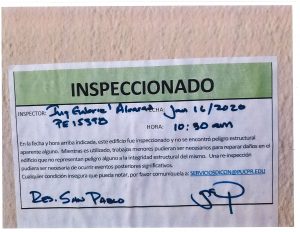 INSPECCIONADO
INSPECTOR: Ing Alvarado FECHA: Jan 16/2020
PE15390 HORA: 10:30 am
En la fecha y hora arriba indicada, este edificio fue inspeccionado y no se encontró peligro estructural
aparente alguno. Mientras es utilizado, trabajos menores pudieran ser necesarios para reparar daños en el
edificio que no representan peligro alguno a la integridad estructural del mismo. Una re inspección
pudiera ser necesaria de ocurrir eventos posteriores significativos.
Cualquier condición insegura que pueda notar, por favor comuníquela a: SERVICIOSDICON@PUCPR.EDU
Res. San Pablo